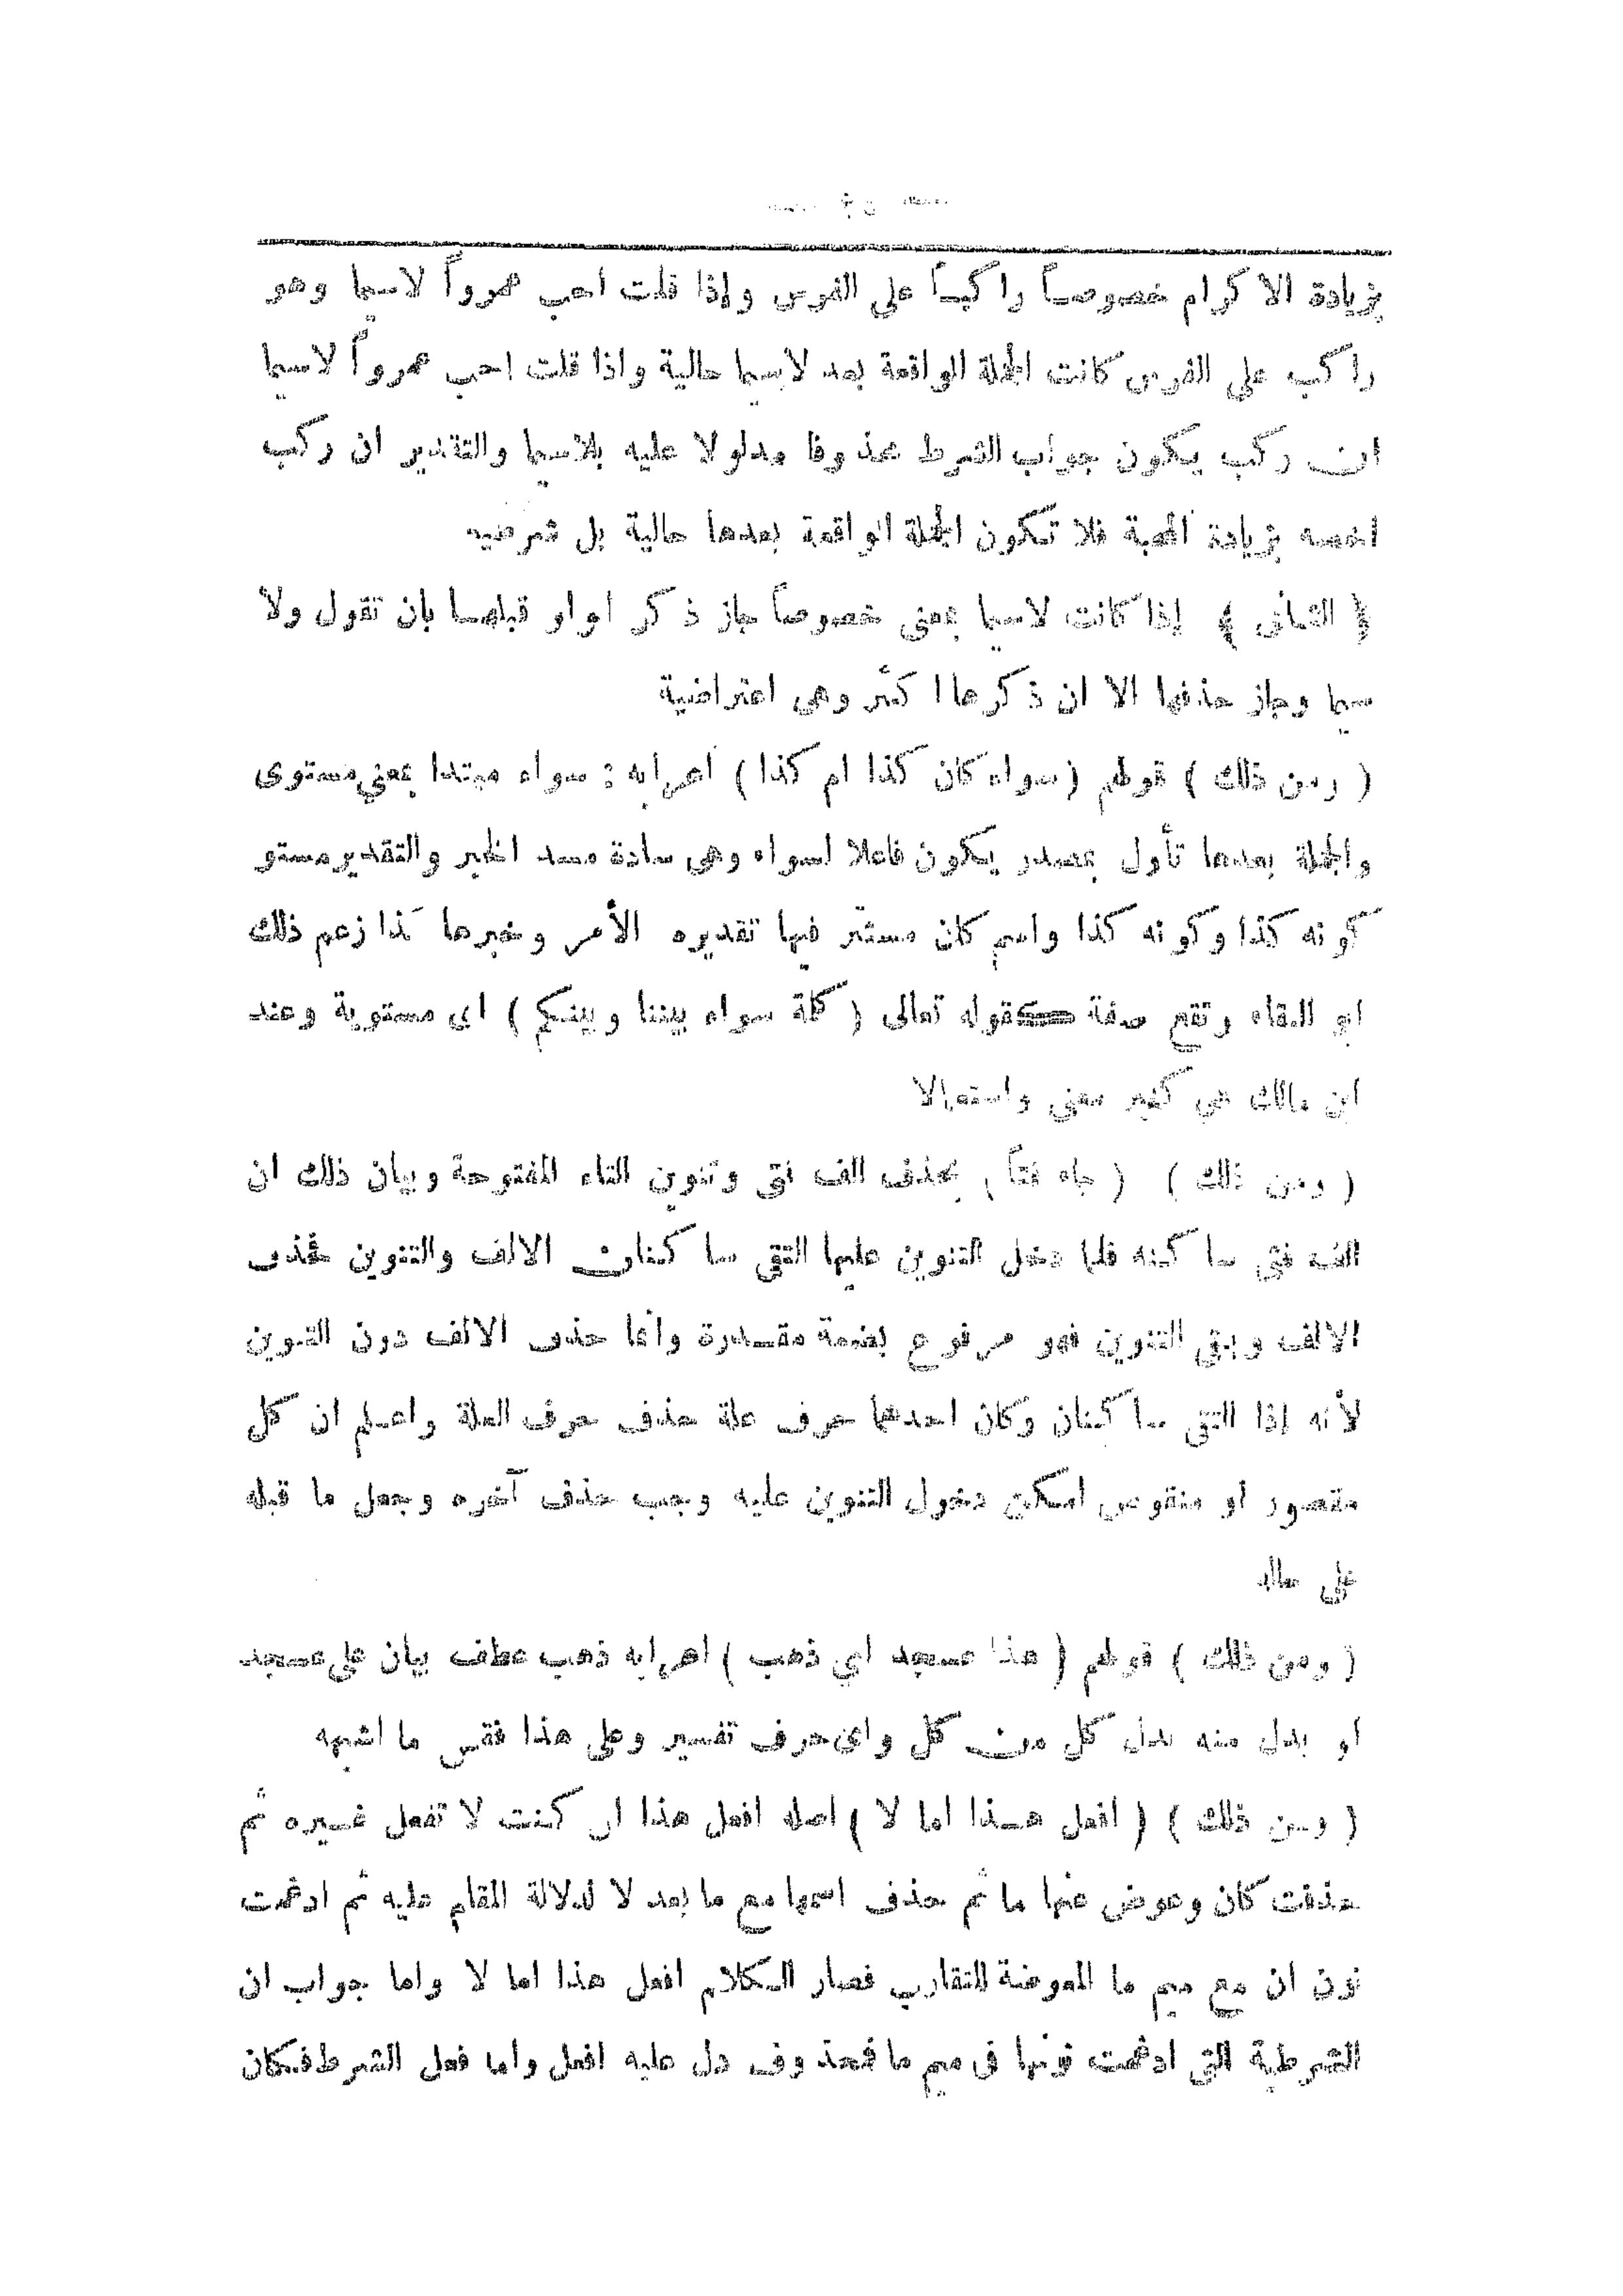 بزيادة الاكرام خصوصاً راكباً على الفرس وإذا قلت احب عمرواً لاسيما وهو
راكب على الفرس كانت الجملة الواقعة بعد لاسيما حالية واذا قلت احب عمرواً لاسيما
ان ركب يكون جواب الشرط محذوفا مدلولا عليه بلاسيما والتقدير ان ركب
اخصه بزيادة المحبة فلا تكون الجملة الواقعة بعدها حالية بل شرطيه
﴿ الثانى ﴾ إذا كانت لاسيما بمعنى خصوصاً جاز ذكر الواو قبلها بان تقول ولا
سيما وجاز حذفها الا ان ذكرها اكثر وهى اعتراضية
( ومن ذلك ) قولهم (سواء كان كذا ام كذا) اعرابه : سواء مبتدا بمعنى مستوى
والجملة بعدها تأول بمصدر يكون فاعلا لسواء وهى سادة مسد الخبر والتقدير مستو
كونه كذا وكونه كذا واسم كان مستتر فيها تقديره الأمر وخبرها كذا زعم ذلك
ابو البقاء وتقع صفة كقوله تعالى ( كلمة سواء بيننا وبينكم ) اى مستوية وعند
ابن مالك هي كغير معنى واستعمالا
( ومن ذلك ) ( جاء فتاً ) بحذف الف فتى وتنوين التاء المفتوحة وبيان ذلك ان
الف فتى ساكنه فلما دخل التنوين عليها التقى ساكنان الالف والتنوين فحذف
الالف وبقى التنوين فهو مرفوع بضمة مقدرة وانما حذف الالف دون التنوين
لأنه إذا التقى ساكنان وكان احدهما حرف علة حذف حرف العلة واعلم ان كل
مقصور او منقوص امكن دخول التنوين عليه وجب حذف آخره وجعل ما قبله
على حاله
( ومن ذلك ) قولهم ( هذا عسجد اي ذهب ) اعرابه ذهب عطف بيان على عسجد
او بدل منه بدل كل من كل واى حرف تفسير وعلى هذا فقس ما اشبهه
( ومن ذلك ) ( افعل هذا اما لا ) اصله افعل هذا ان كنت لا تفعل غيره ثم
حذفت كان وعوض عنها ما ثم حذف اسمها مع ما بعد لا لدلالة المقام عليه ثم ادغمت
نون ان مع ميم ما المعوضة للتقارب فصار الكلام افعل هذا اما لا واما جواب ان
الشرطية التى ادغمت نونها فى ميم ما فمحذوف دل عليه افعل واما فعل الشرط فكان